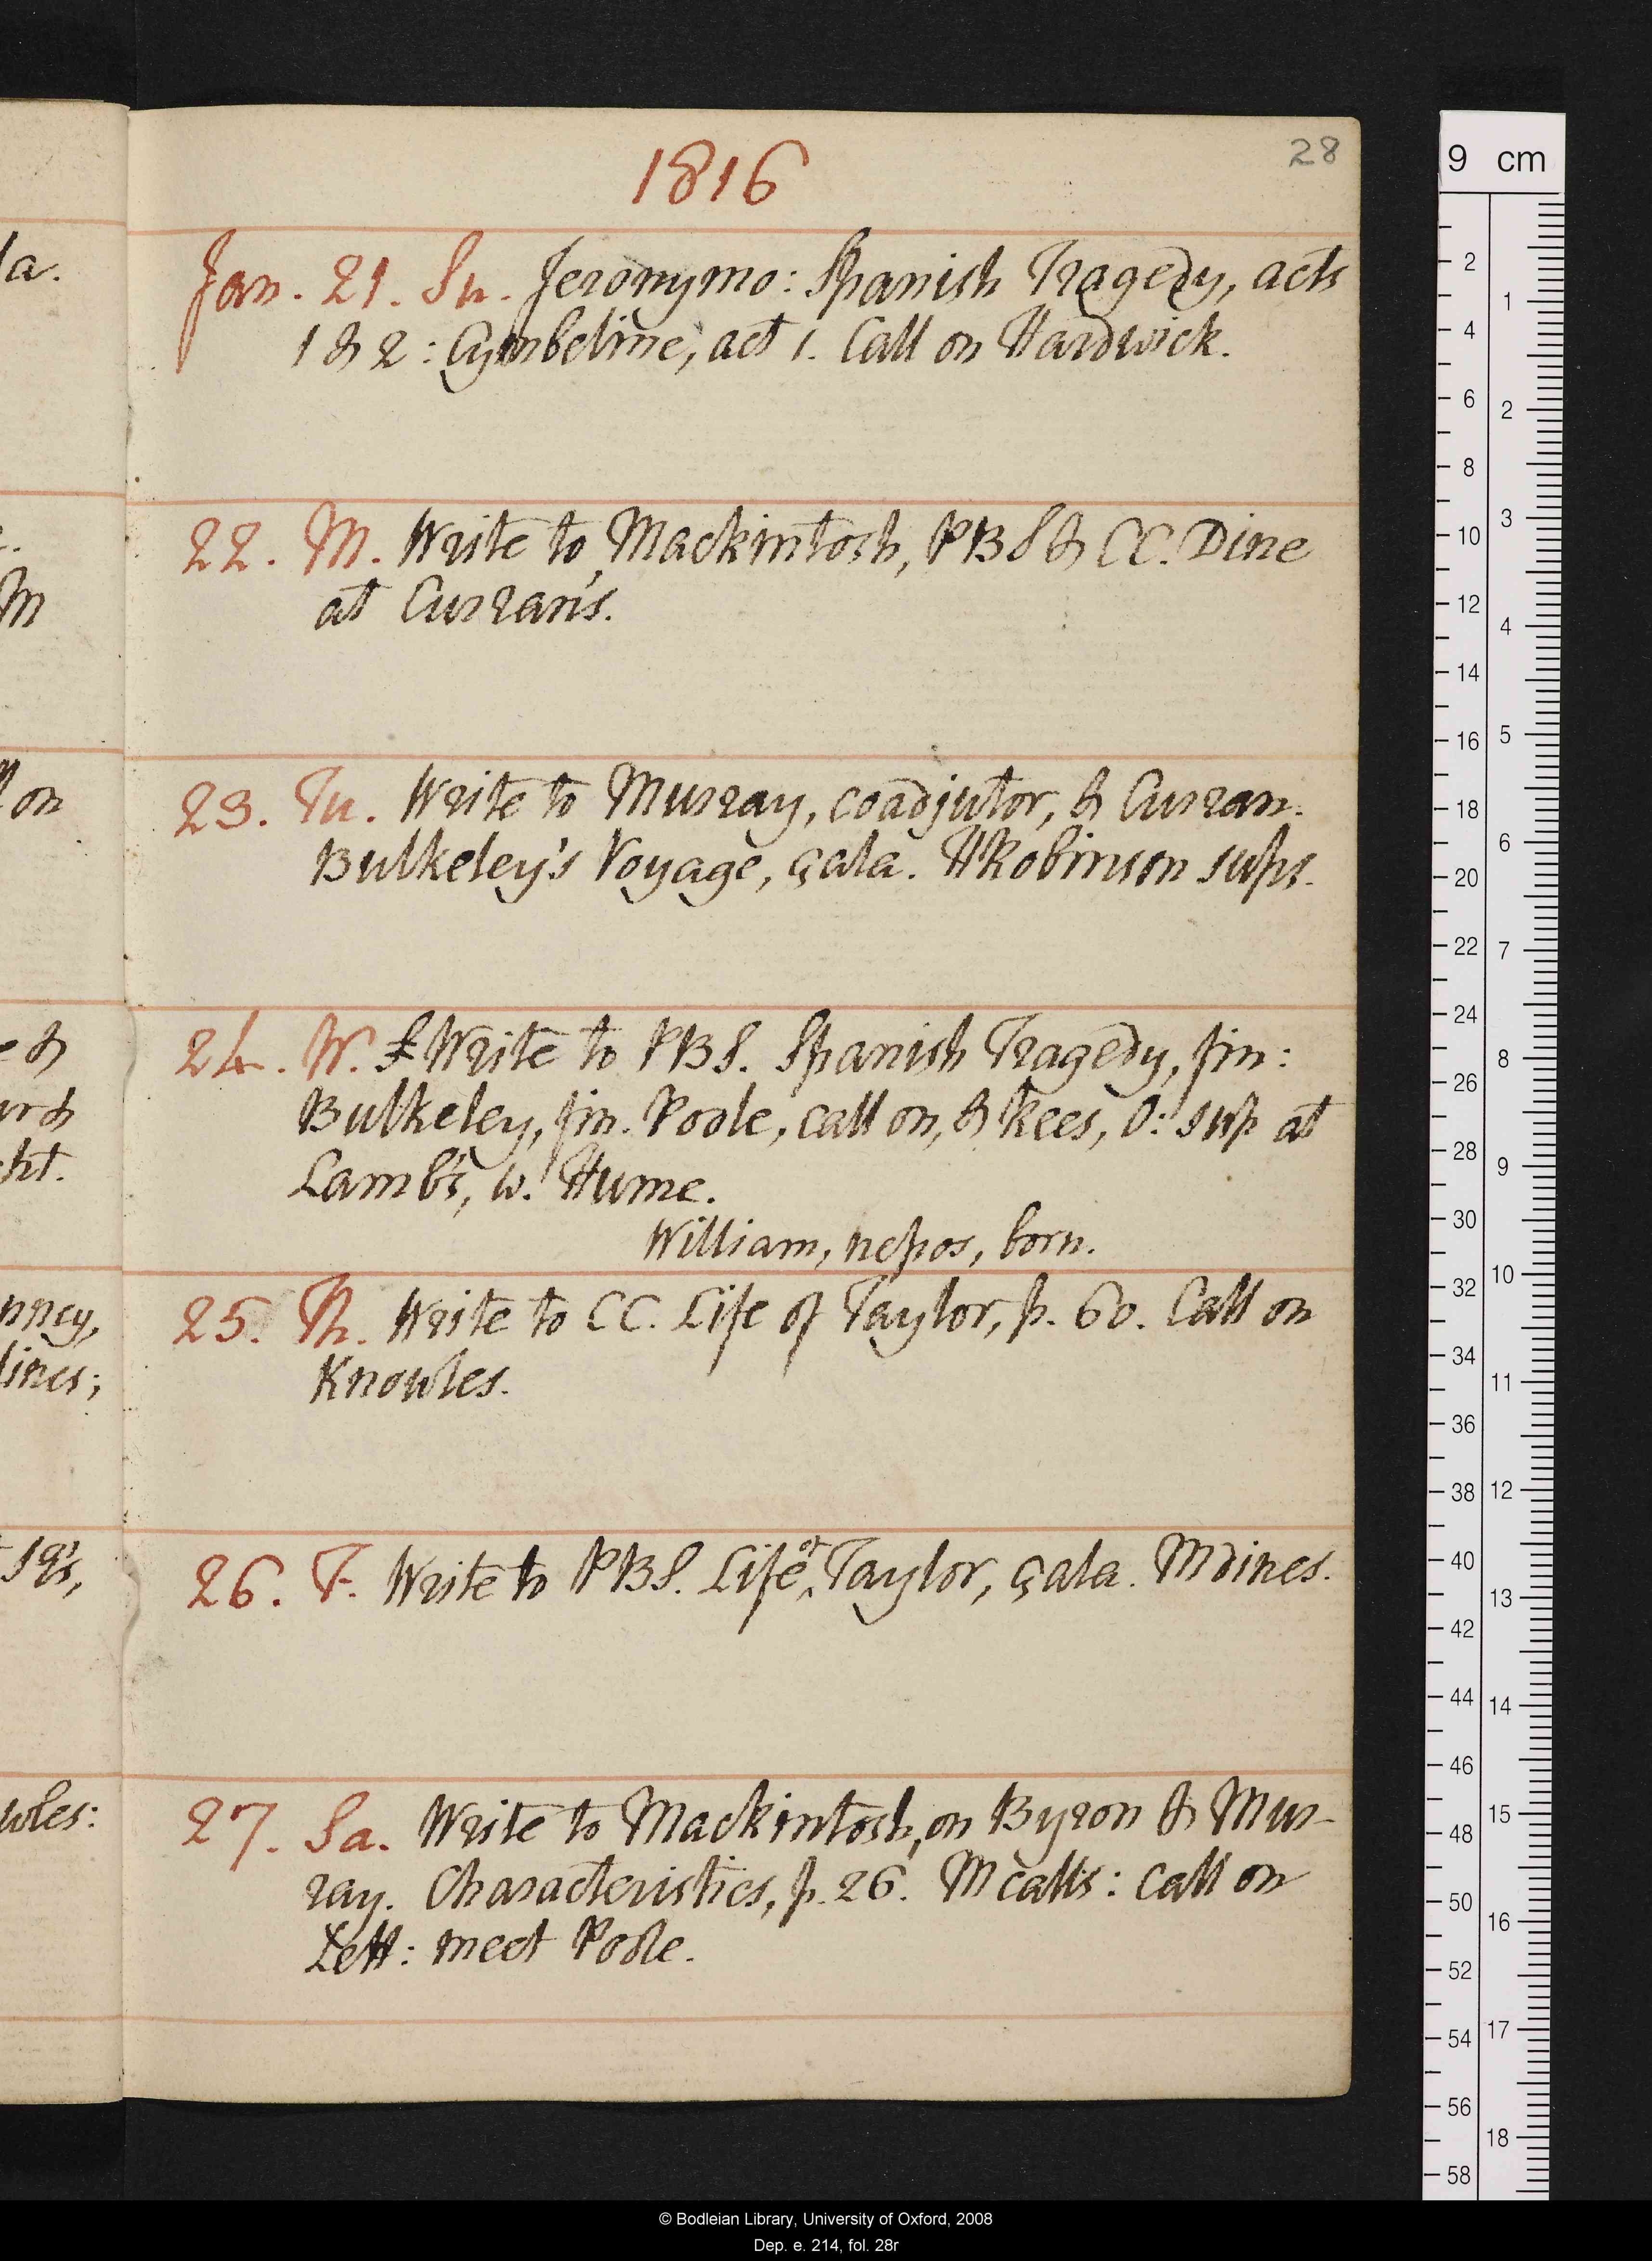 1816
28
Jan. 21. Su. Jeronymo: Spanish Tragedy, acts
1 & 2: Cymbeline, act 1. Call on Hardwick.
22. M. Write to Mackintosh, PBS & CC. Dine
at Curran's.
23. Tu. Write to Murray, coadjutor, & Curran.
Bulkeley's Voyage, çala. HRobinson sups.
24. W. Write to PBS. Spanish Tragedy, fin:
Bulkeley, fin. Poole, call on, & Rees, 0: sup at
Lamb's, w. Hume.
William, nepos, born.
25. Th. Write to CC. Life of Taylor, p. 60. Call on
Knowles.
26. F. Write to PBS. Life of Taylor, çala. M dines.
27. Sa. Write to Mackintosh, on Byron & Mur-
ray. Characteristics, p. 26. M calls: call on
Lett: meet Poole.
la.
M
on
& 
cht.
nney,
lines;
wles:
9 cm
2
4
6
8
10
12
14
16
18
20
22
24
26
28
30
32
34
36
38
40
42
44
46
48
50
52
54
56
58
1
2
3
4
5
6
7
8
9
10
11
12
13
14
15
16
17
18
© Bodleian Library, University of Oxford, 2008
Dep. e. 214, fol. 28r